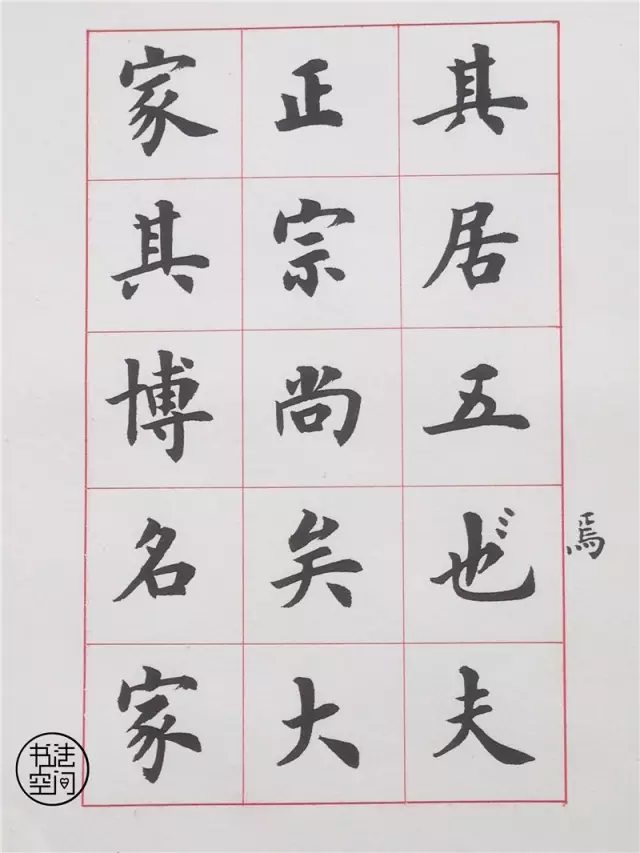 焉
其居五也夫
正宗尚矣大
家其博名家
书法
空间